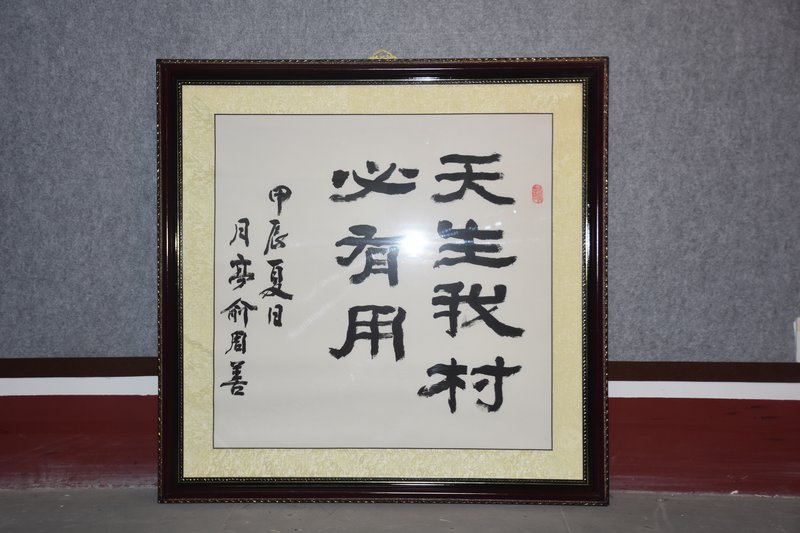 天生我村
必有用
甲辰夏日
月亭俞眉善